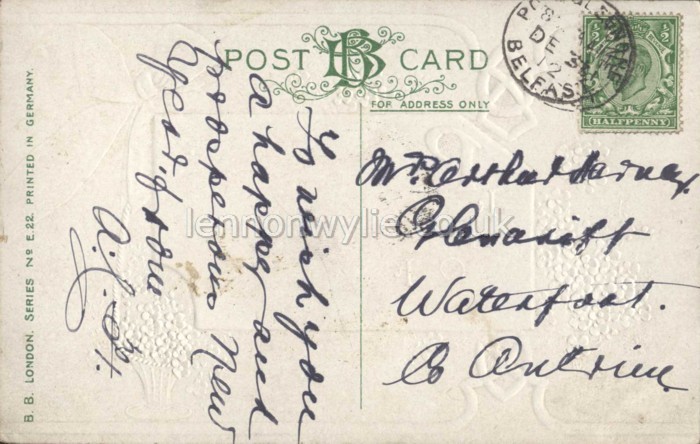 POST CARD
FOR ADDRESS ONLY
BELFAST
DE
12
HALFPENNY
B. B. LONDON. SERIES Nº E.22. PRINTED IN GERMANY.
To wish you
a happy and
prosperous New
Year, from
Glenariff
Waterfoot.
Co Antrim.
lennonwylie.co.uk